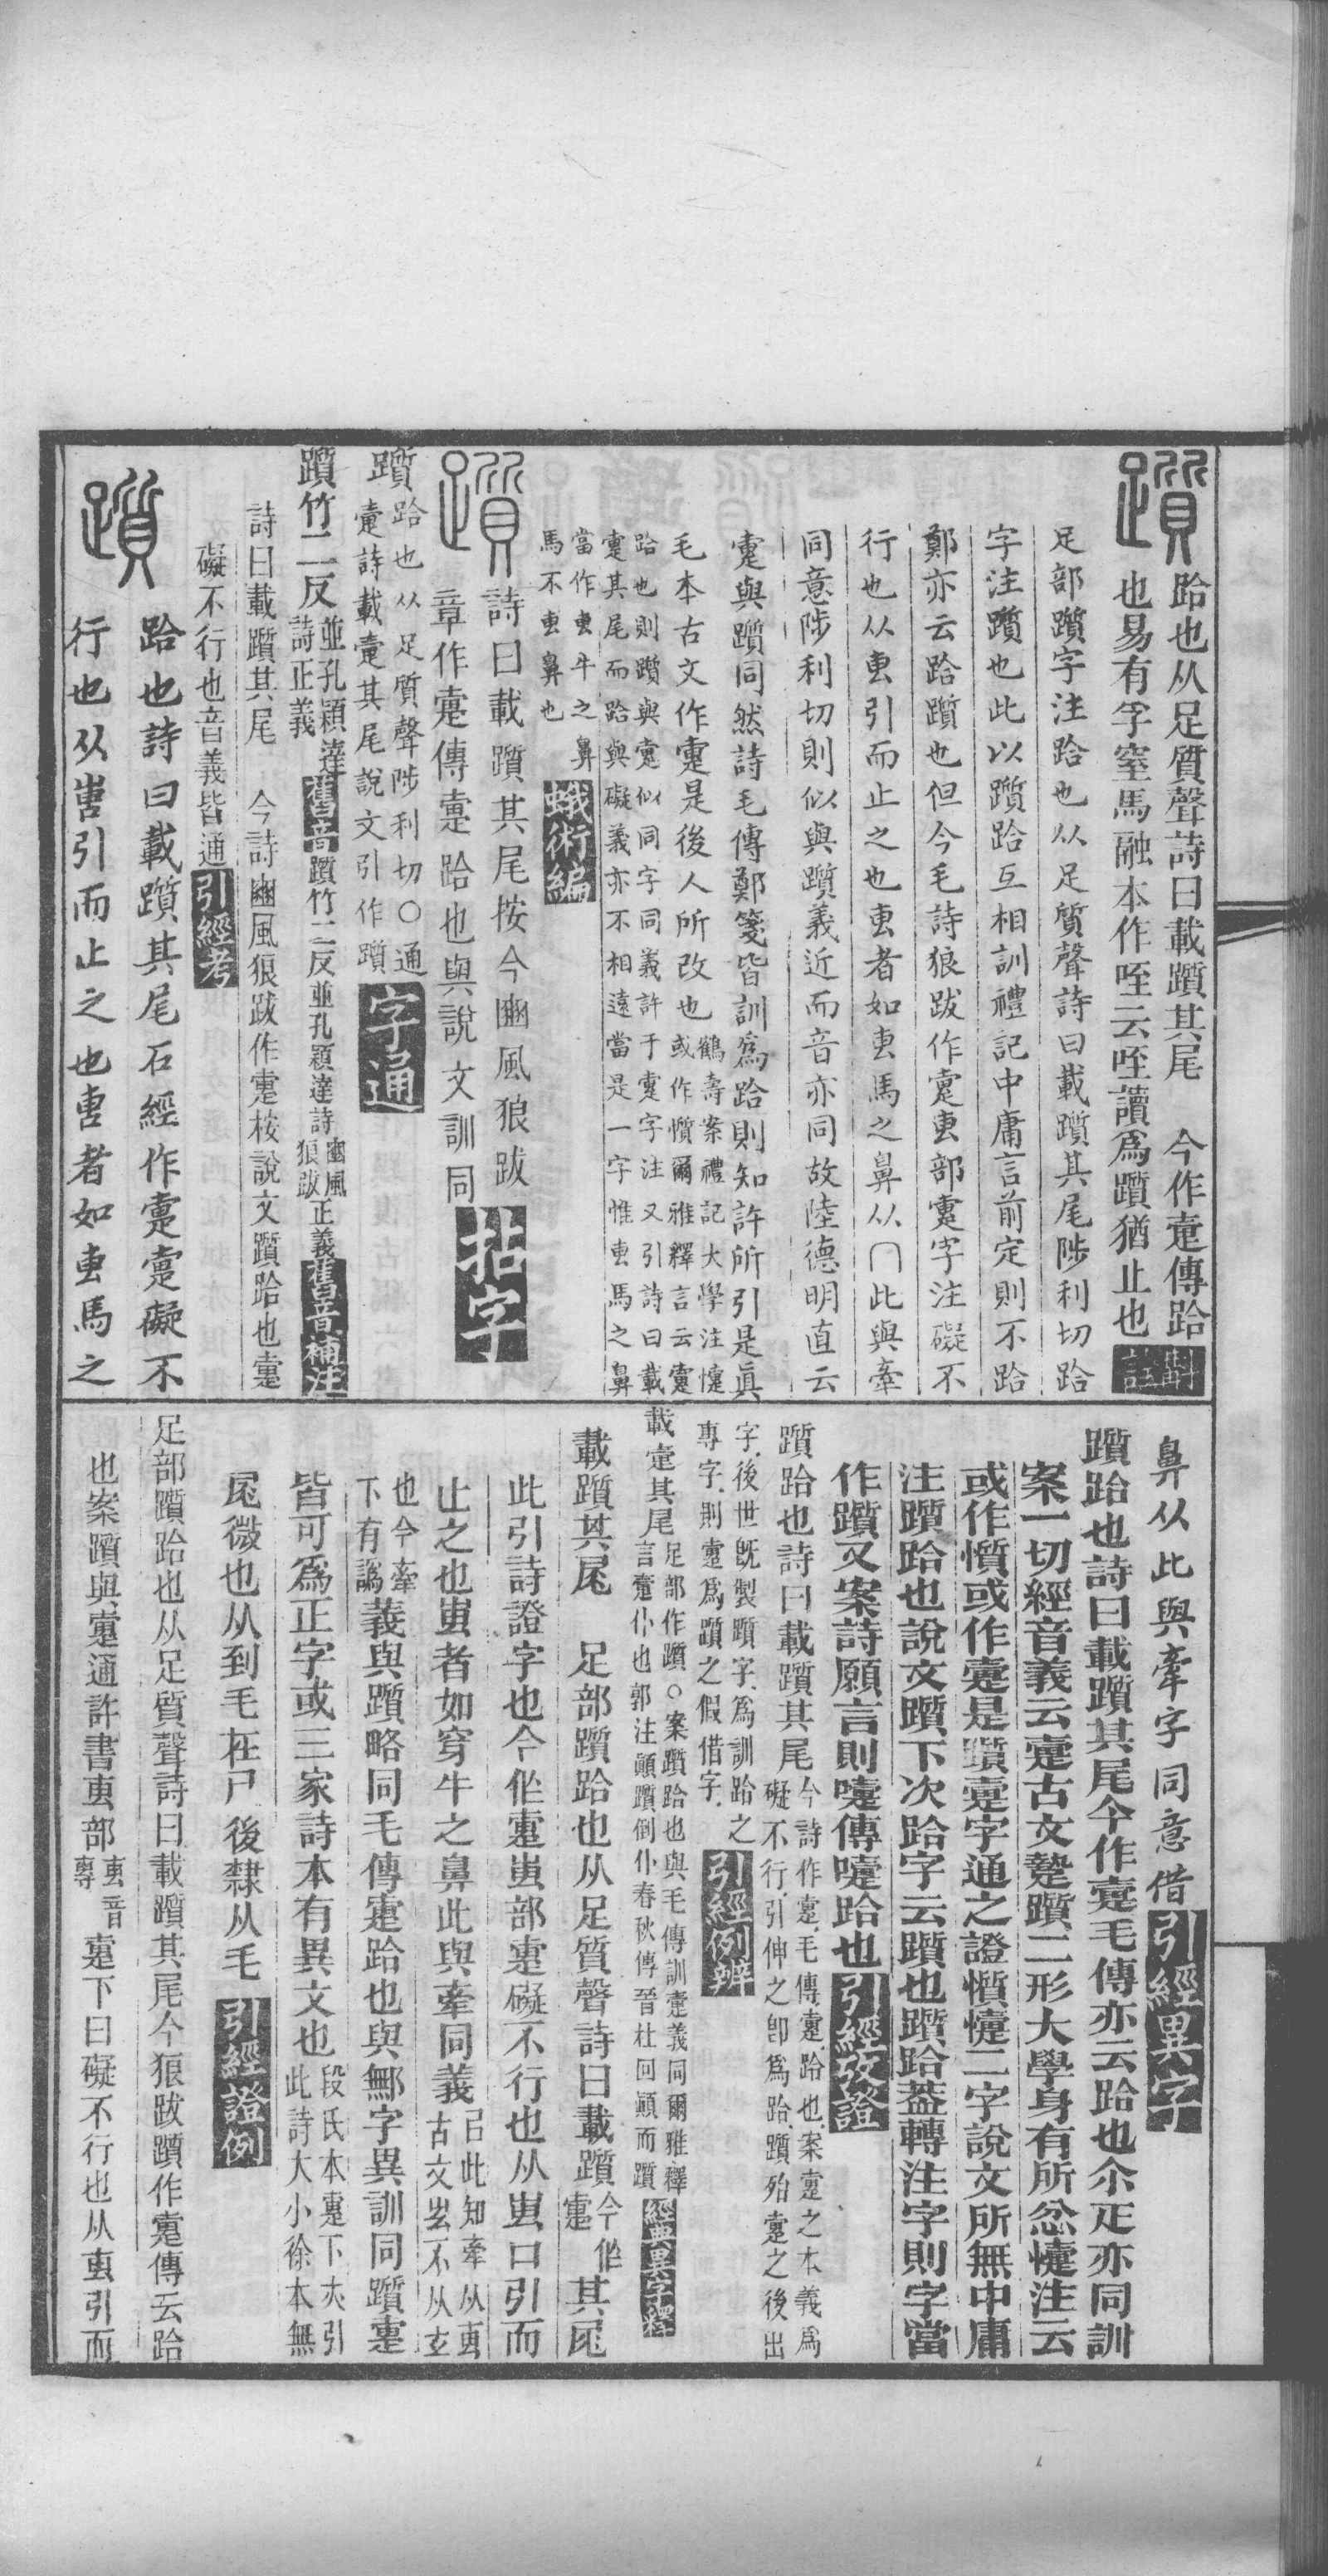 躓
跲也从足質聲詩曰載躓其尾　今作疐傳跲
也易有孚窒馬融本作咥云咥讀爲躓猶止也
斠詮
足部躓字注跲也从足質聲詩曰載躓其尾陟利切跲
字注躓也此以躓跲互相訓禮記中庸言前定則不跲
鄭亦云跲躓也但今毛詩狼跋作疐叀部疐字注礙不
行也从叀引而止之也叀者如叀馬之鼻从冂此與牽
同意陟利切則似與躓義近而音亦同故陸德明直云
疐與躓同然詩毛傳鄭箋皆訓爲跲則知許所引是眞
毛本古文作疐是後人所改也
鶴壽案禮記大學注懥
或作懫爾雅釋言云疐
跲也則躓與疐似同字同義許于疐字注又引詩曰載
疐其尾而跲與礙義亦不相遠當是一字惟叀馬之鼻
當作叀牛之鼻
馬不叀鼻也
蛾術編
躓
詩曰載躓其尾按今豳風狼跋
章作疐傳疐跲也與說文訓同
拈字
躓
跲也从足質聲陟利切〇通
疐詩載疐其尾說文引作躓
字通
躓竹二反
並孔穎達
詩正義
舊音
躓竹二反並孔穎達詩
豳風
狼跋
正義
舊音補注
詩曰載躓其尾　今詩豳風狼跋作疐按說文躓跲也疐
礙不行也音義皆通
引經考
躓
跲也詩曰載躓其尾石經作疐疐礙不
行也从叀引而止之也叀者如叀馬之
鼻从此與牽字同意借
引經異字
躓跲也詩曰載躓其尾今作疐毛傳亦云跲也尒疋亦同訓
案一切經音義云疐古文躓二形大學身有所忿懥注云
或作懫或作疐是躓疐字通之證懫懥二字說文所無中庸
注躓跲也說文躓下次跲字云躓也躓跲葢轉注字則字當
作躓又案詩願言則嚏傳嚏跲也
引經攷證
躓跲也詩曰載躓其尾
今詩作疐毛傳疐跲也案疐之本義爲
礙不行引伸之卽爲跲躓殆疐之後出
字後世旣製躓字爲訓跲之
專字則疐爲躓之假借字
引經例辨
載疐其尾
足部作躓〇案躓跲也與毛傳訓疐義同爾雅釋
言疐仆也郭注顚躓倒仆春秋傳晉杜回顚而躓
經典異字釋
載躓其尾　足部躓跲也从足質聲詩曰載躓
今作
疐
其尾
此引詩證字也今作疐叀部疐礙不行也从叀口引而
止之也叀者如穿牛之鼻此與牽同義
㠯此知牽从叀
古文㞷不从玄
也今牽
下有譌
義與躓略同毛傳疐跲也與鄦字異訓同躓疐
皆可爲正字或三家詩本有異文也
段氏本疐下亦引
此詩大小徐本無
尾微也从到毛在尸後隸从毛
引經證例
足部躓跲也从足質聲詩曰載躓其尾今狼跋躓作疐傳云跲
也案躓與疐通許書叀部
叀音
專
疐下曰礙不行也从叀引而